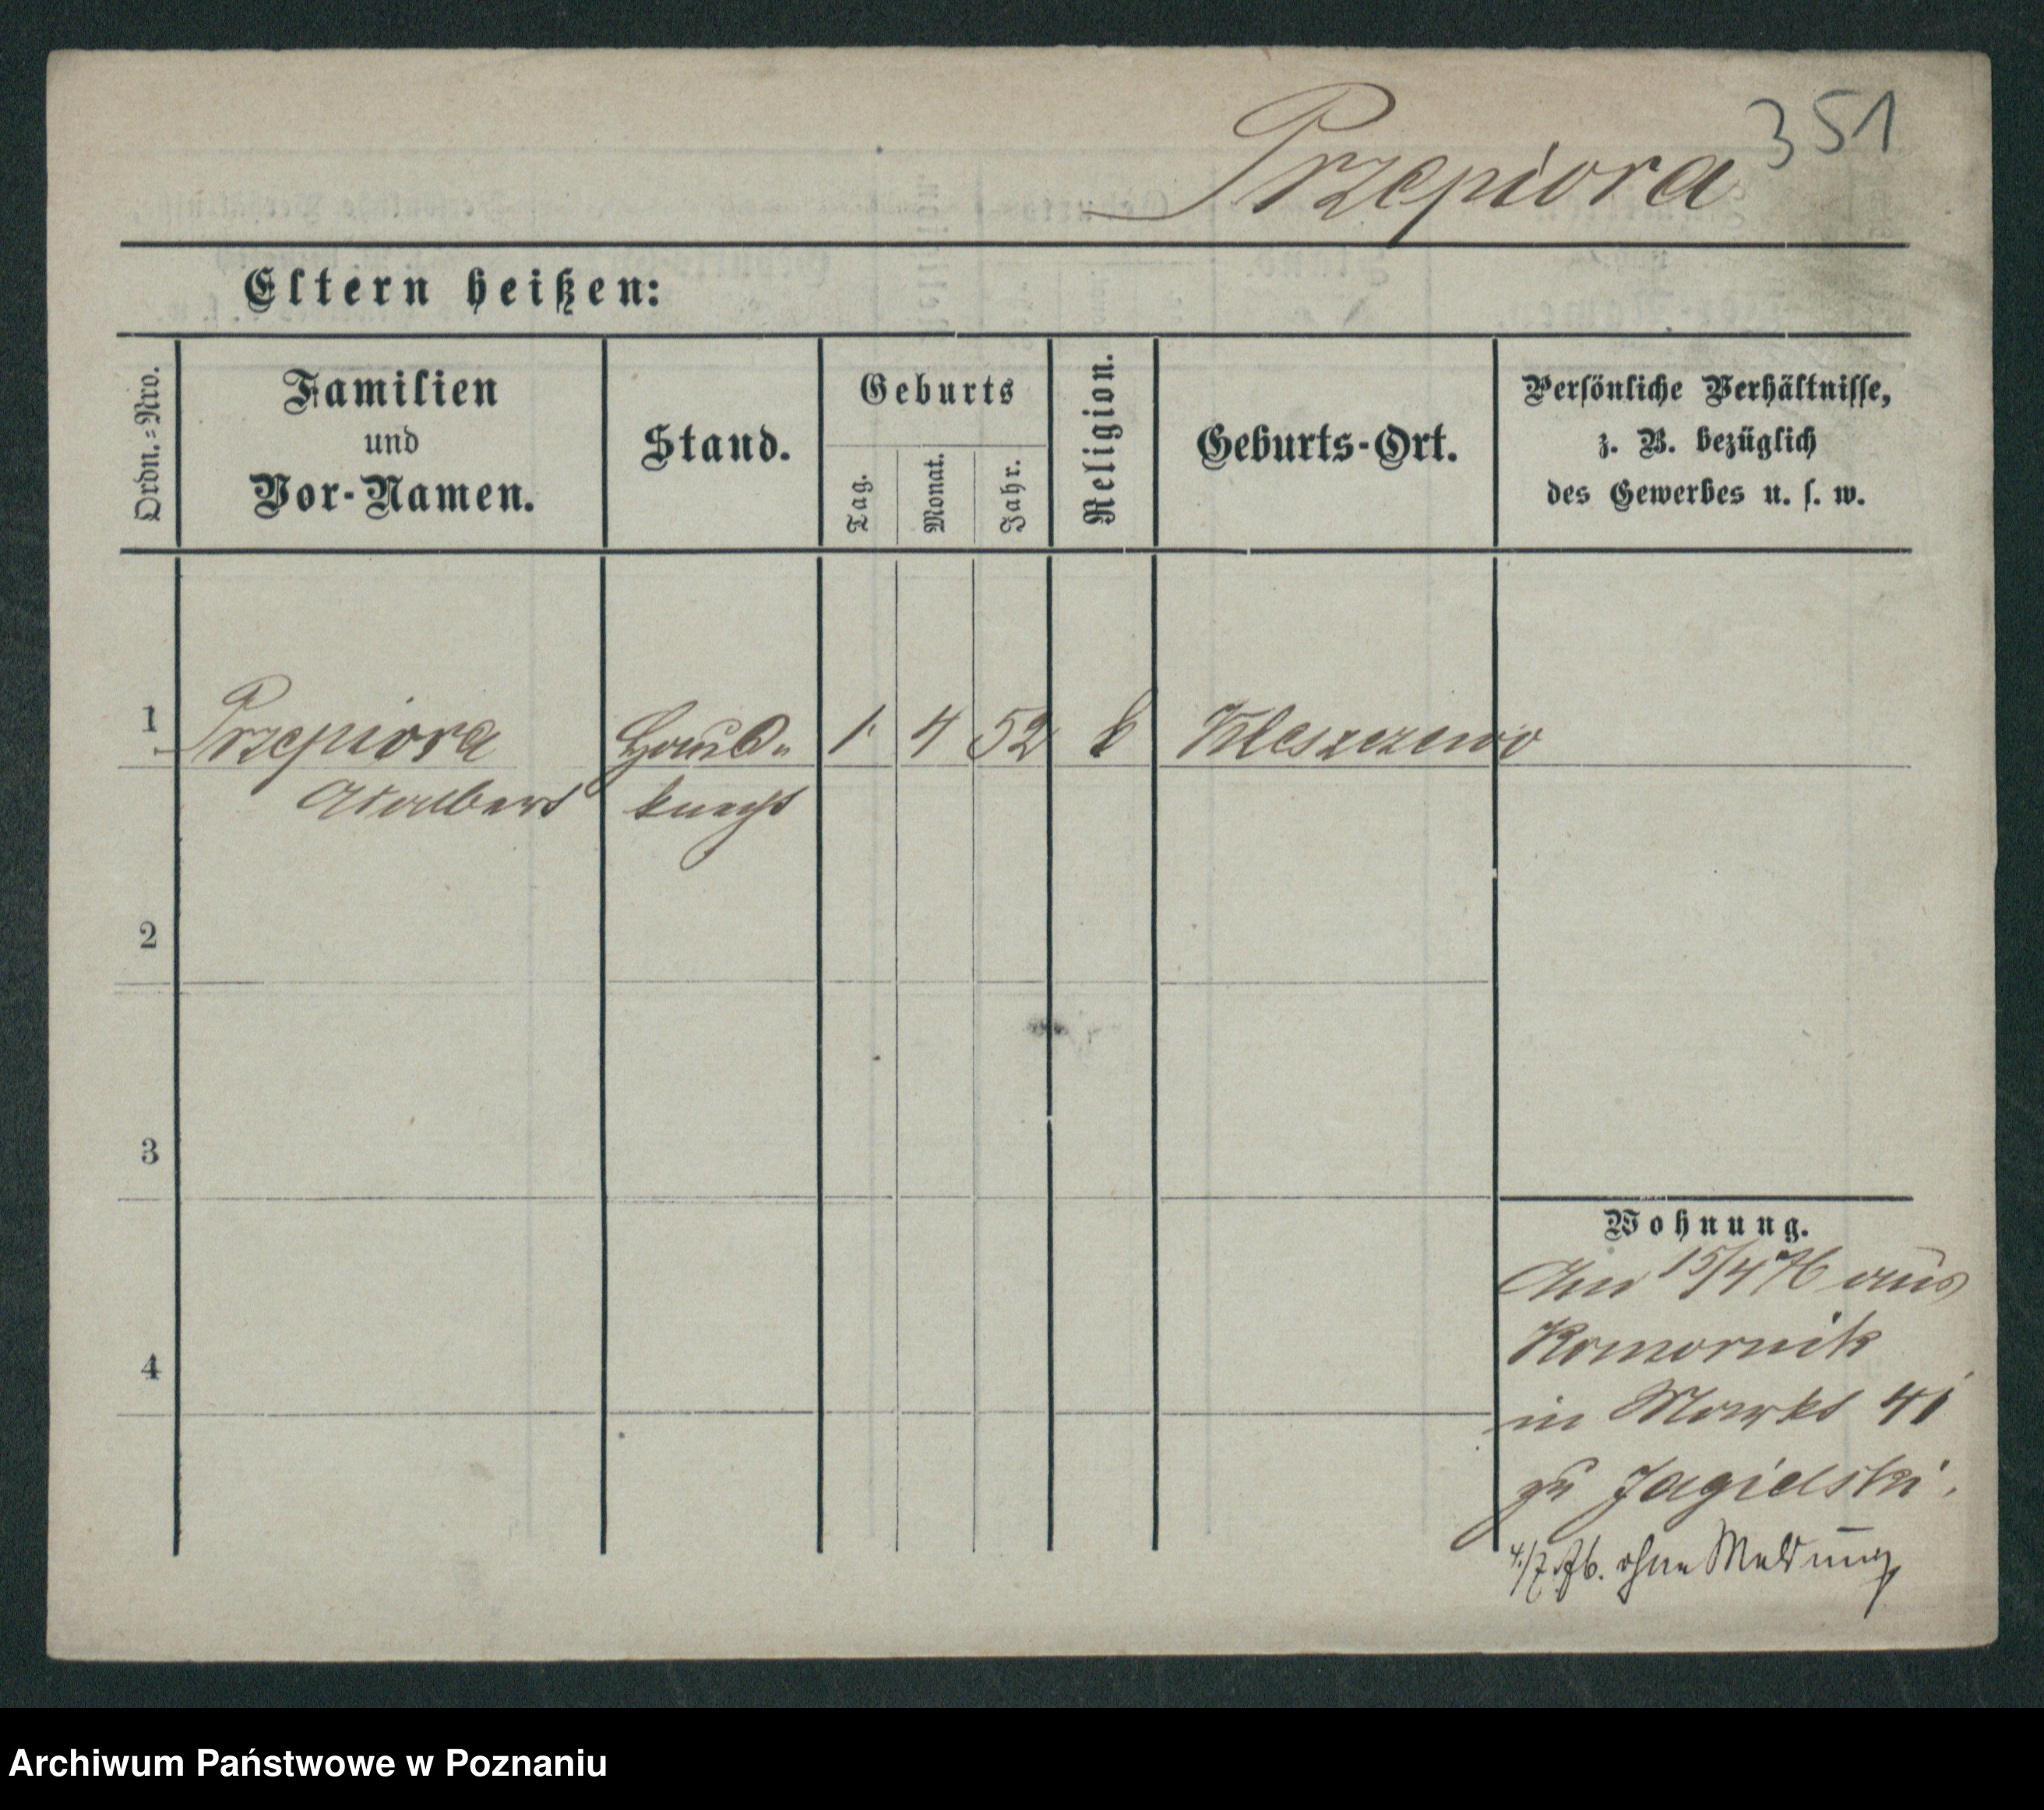 351
Przepiora
Eltern heißen:
Ordn.=Nro.
Familien
und
Vor-Namen.
Stand.
Geburts
Tag.
Monat.
Jahr.
Religion.
Geburts-Ort.
Persönliche Verhältnisse,
z. B. bezüglich
des Gewerbes u. s. w.
1
Przepiora
Adalbert
Haus-
knecht
1
4
52
k
Kleszczewo
2
3
4
Wohnung.
An 15/4 76 aus
Komornik
in Markt 41
zu Jagielski.
4./7. 76. ohne Meldung
Archiwum Państwowe w Poznaniu